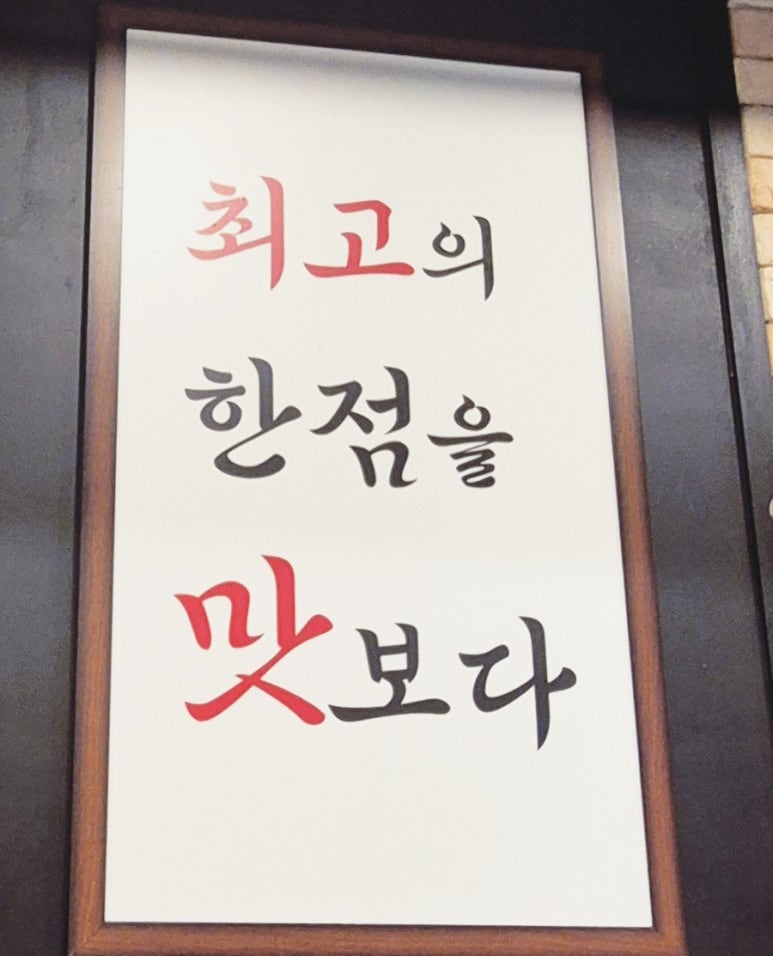 최고의
한점을
맛보다